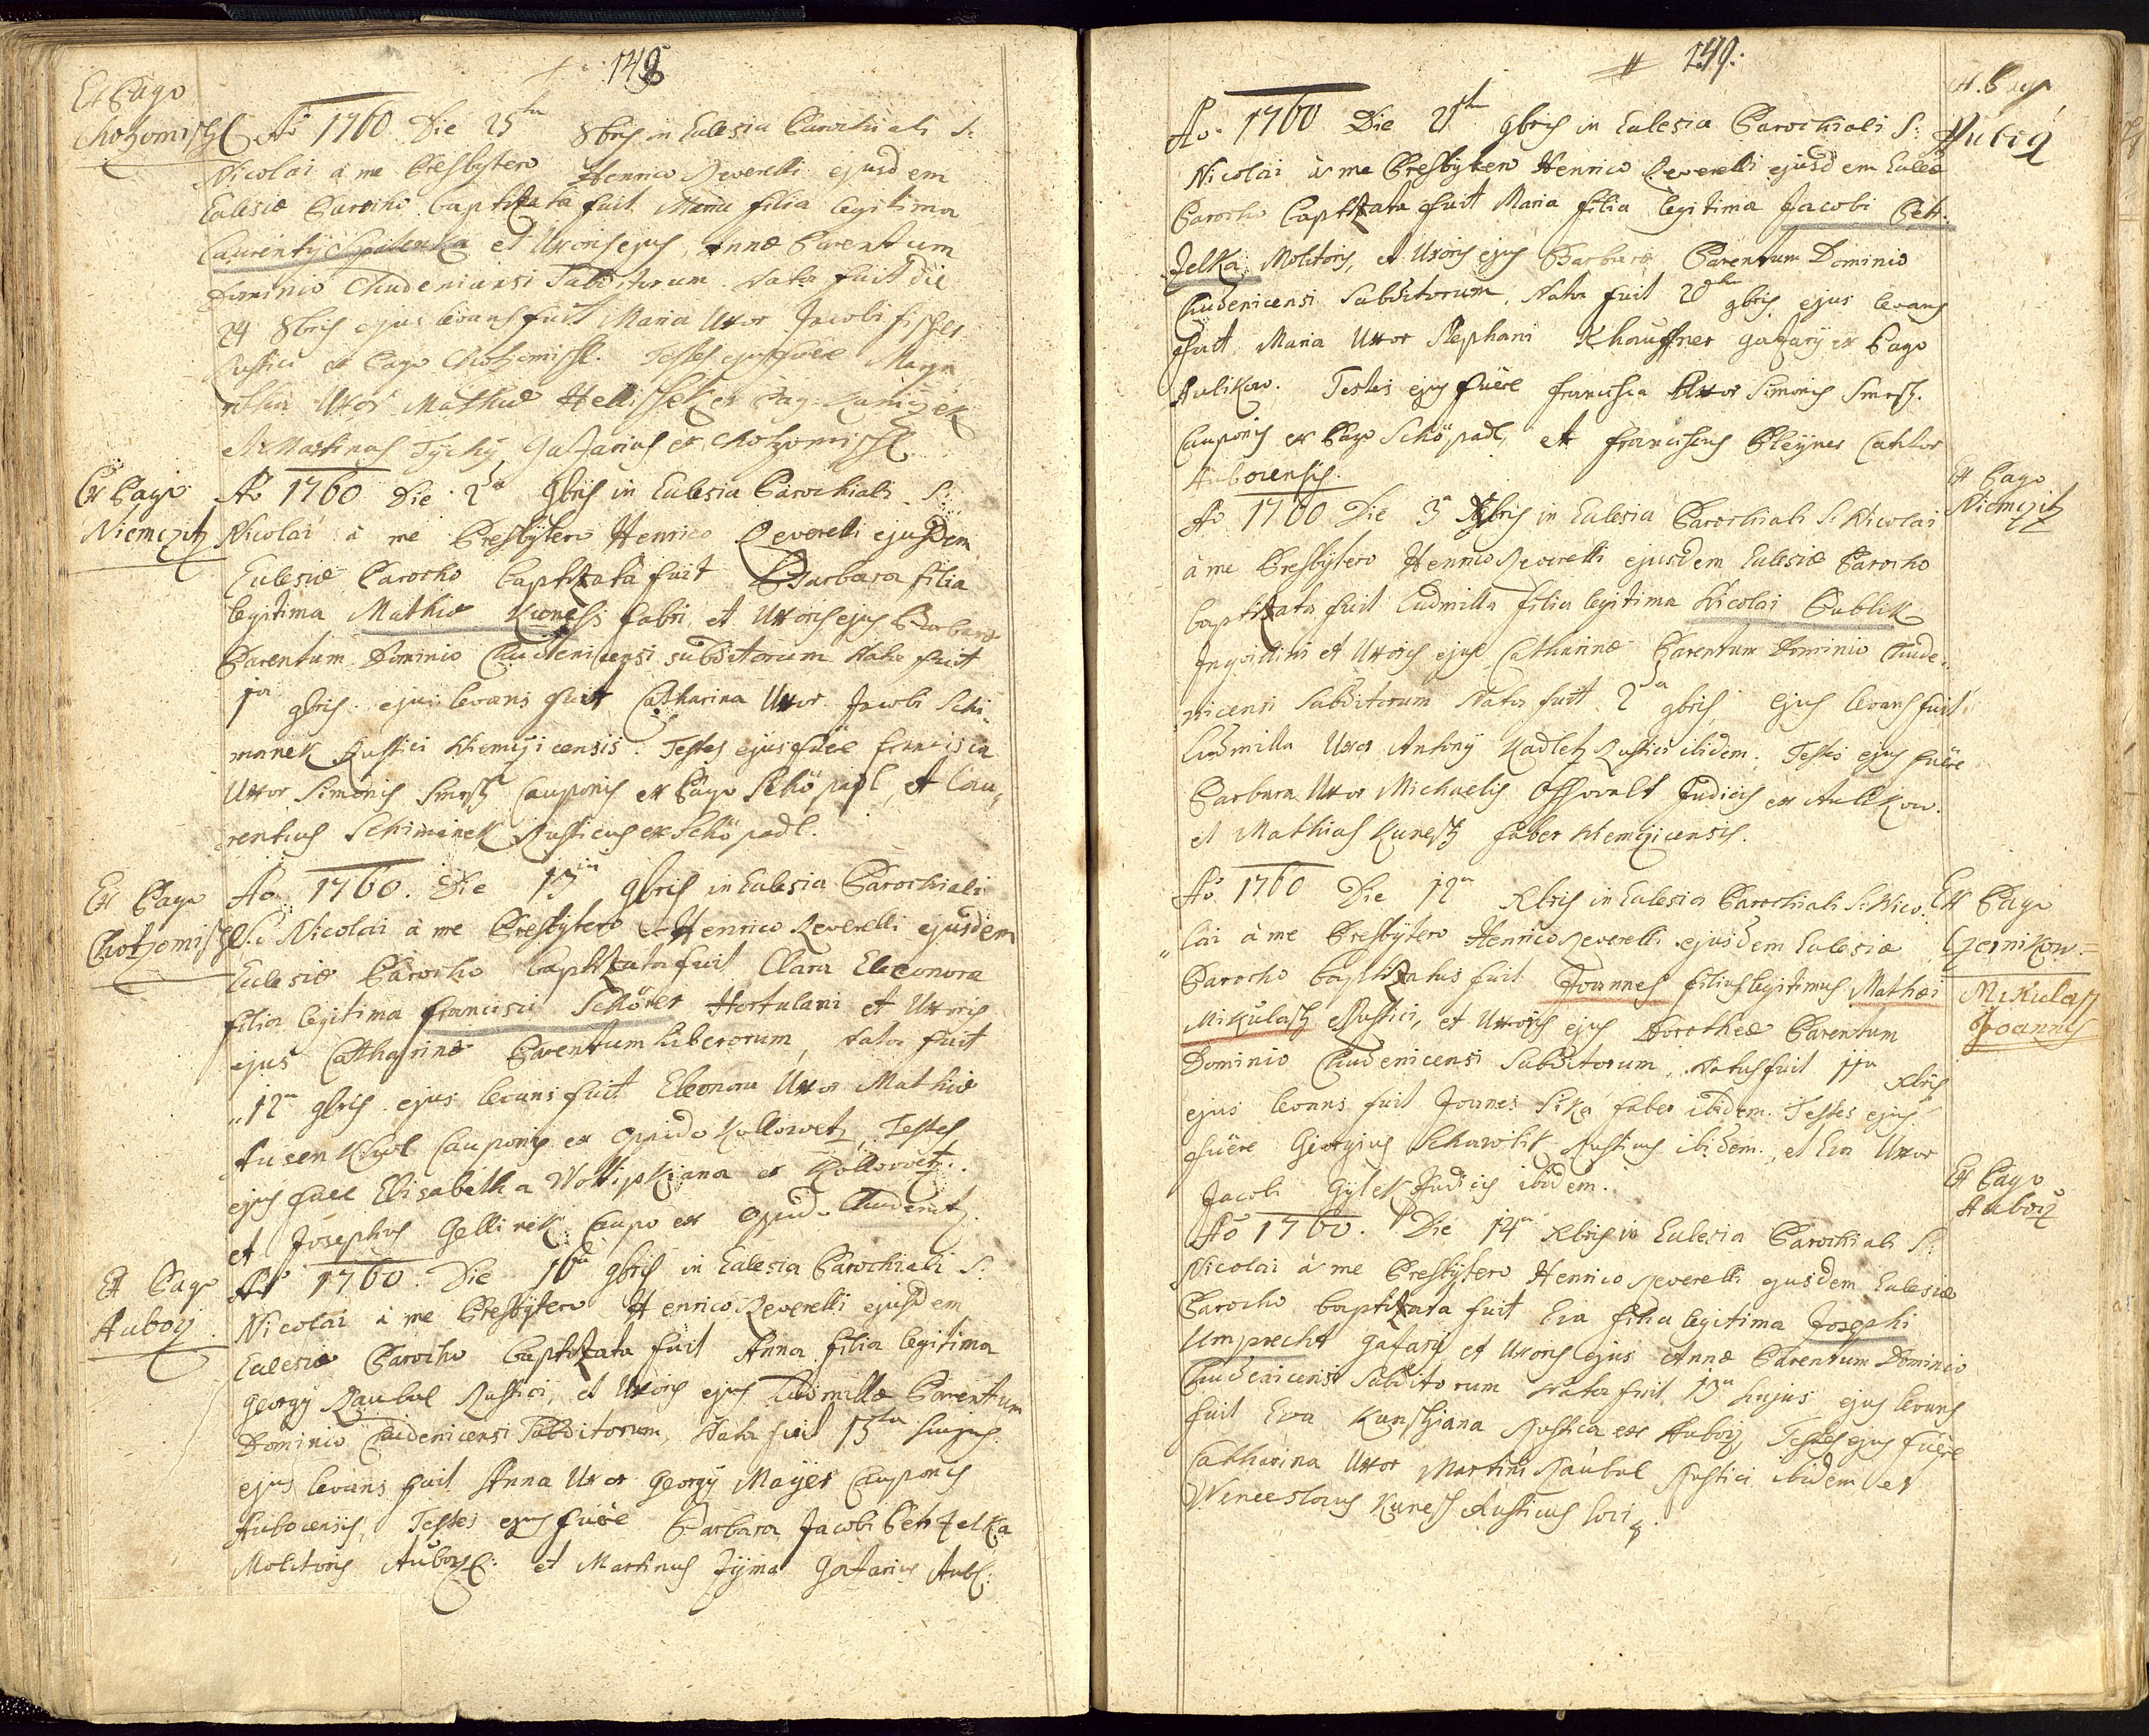 148
Ex Pago
Chotzomischl
Ao 1760 Die 25ta 8bris in Eclesia Parochiali S:
Nicolai à me Presbytero Henrico Reverelli ejusdem
Eclesiæ Parocho baptizata fuit Maria filia legitima
Laurentij et Uxoris ejus Annæ Parentum
Dominio Chudenicensi Subditorum Nata fuit die
24 8bris ejus levans fuit Maria Uxor Jacobi fischer
Rustici ex Pago Chotzomischl. Testes ejus fuêre Marga
retha Uxor Mathiæ Hellisseck ex Pag: Kaniczek
et Martinus Tychÿ Gaszarius ex Chotzomischl
Ex Pago
Niemczitz
Ao 1760 Die 2da 9bris in Eclesia Parochiali S:
Nicolai à me Presbÿtero Henrico Reverelli ejusdem
Eclesiæ Parocho baptizata fuit Barbara filia
legitima Mathiæ Kunessi fabri et Uxoris ejus Barbaræ
Parentum Dominio Chudenicensi subditorum Nata fuit
1ma 9bris ejus levans fuit Catharina Uxor Jacobi Schi„
manek Rustici Niemczicensis. Testes ejus fuêre francisca
Uxor Simonis Smrsz Cauponis ex Pago Schöpadl, et Lau„
rentius Schimanek Rusticus ex Schöpadl.
Ex Pago
Chotzomischl
Ao 1760. Die 13tia 9bris in Eclesia Parochiali
S: Nicolai à me Presbÿtero Henrico Reverelli ejusdem
Eclesiæ Parocho baptizata fuit Clara Eleonora
filia legitima francisci Schörer Hortulani et Uxoris
ejus Catharinæ Parentum Liberorum, Nata fuit
„12a 9bris ejus levans fuit Eleonora Uxor Mathiæ
Cauponis ex Oppido Kollowetz, Testes
ejus fuêre Elisabetha ex Kollowetz.
et Josephus Gellinek Caupo ex Opido Chudenitz.
Ex Pago
Auborz
Ao 1760. Die 16ta 9bris in Eclesia Parochiali S:
Nicolai à me Presbÿtero Henrico Reverelli ejusdem
Eclesiæ Parocho baptizata fuit Anna filia legitima
Georgÿ Raubal Rustici, et Uxoris ejus Ludmillæ Parentum
Dominio Chudenicensi Subditorum, Nata fuit 15ta hujus
ejus levans fuit Anna Uxor Georgÿ Mayer Cauponis
Aubocensis, Testes ejus fuêre Barbara Jacobi Petrzelka
Molitoris Auborz: et Martinus Zÿma Gaszarius Aub:
149.
Ex Pago
Ao. 1760 Die 21ma 9bris in Eclesia Parochiali S:
Nicolai à me Presbytero Henrico Reverelli ejusdem Eclesiæ
Parocho baptizata fuit Maria filia legitima Jacobi Petr„
zelka Molitoris, et Uxoris ejus Barbaræ Parentum Dominio
Chudenicensi Subditorum, Nata fuit 20ma 9bris ejus levans
fuit Maria Uxor Stephani Khauffner gaszarÿ ex Pago
Aulikow. Testes ejus fuêre francisca Uxor Simonis Smrsz.
Cauponis ex Pago Schöpadl, et franciscus Pleÿner Cantor
Auborensis.
Ex Pago
Niemczitz
Ao 1760 Die 3a Xbris in Eclesia Parochiali S: Nicolai
à me Presbÿtero Henrico Reverelli ejusdem Eclesiæ Parocho
baptizata fuit Ludmilla filia legitima Nicolai Bublik
Inquilini et Uxoris ejus Catharinæ Parentum Dominio Chude„
nicensi Subditorum Nata fuit 2da 9bris, Ejus levans fuit
Ludmilla Uxor Antonÿ Kadletz Rustici ibidem, Testes ejus fuêre
Barbara Uxor Michaelis Osswalt Judicis ex Aulikow.
et Mathias Kunesz faber Niemczicensis.
Ex Pago
Czernikow.
Mikulasz
Joannes
Ao. 1760 Die 12a Xbris in Eclesia Parochiali S: Nico„
„lai à me Presbÿtero Henrico Reverelli ejusdem Eclesiæ
Parocho baptizatus fuit Joannes filius legitimus Mathæi
Mikulasz Rustici, et Uxoris ejus Dorotheæ Parentum
Dominio Chudenicensi Subditorum. Natus fuit 11ma Xbris
ejus levans fuit Joannes Sika faber ibidem. Testes ejus
fuêre Georgius Rusticus ibidem, et Eva Uxor
Jacobi Gÿlek Judicis ibidem.
Ex Pago
Auborz
Ao 1760. Die 14a Xbris in Eclesia Parochiali S:
Nicolai à me Presbÿtero Henrico Reverelli ejusdem Eclesiæ
Parocho baptizata fuit Eva filia legitima Josephi
Umprecht Gaszarÿ et Uxoris ejus Annæ Parentum Dominio
Chudenicensi Subditorum Nata fuit 13tia hujus ejus levans
fuit Eva Kunssiana Rustica ex Auborz, Testes ejus fuêre
Catharina Uxor Martini Raubal Rustici ibidem et
Wenceslaus Kuness Rusticus loci